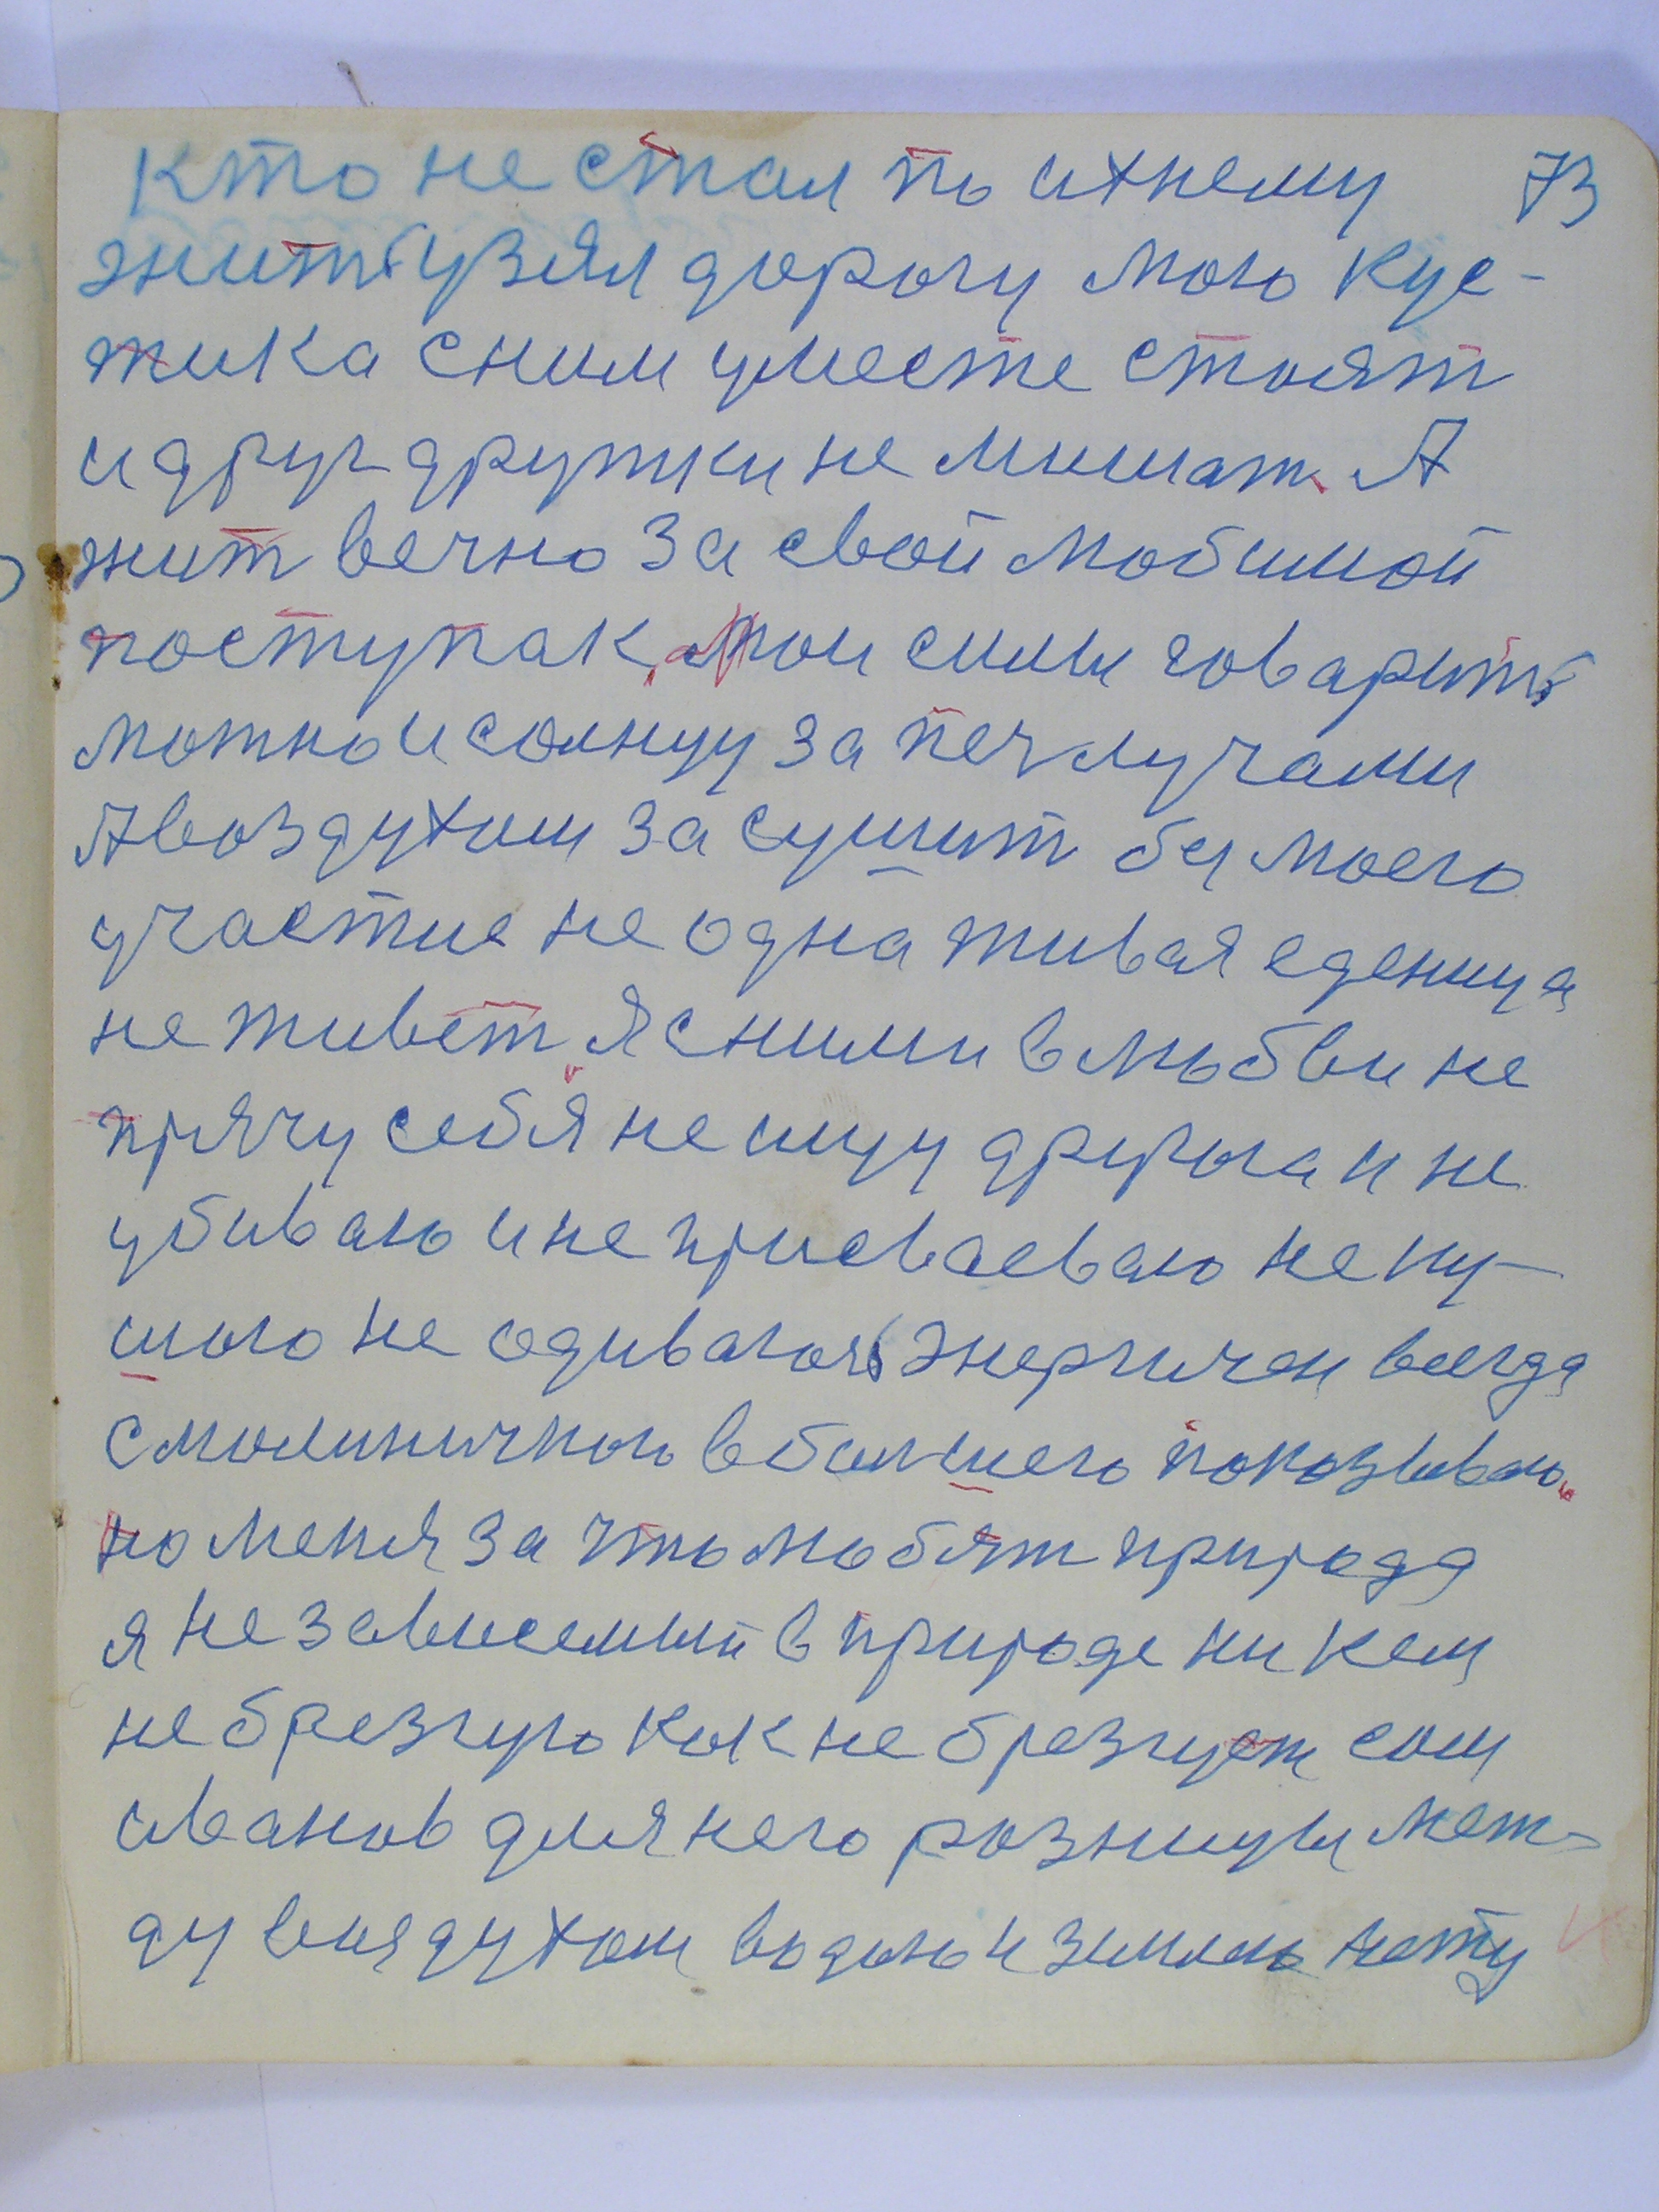 кто не стал по ихнему 73
жить узял дорогу мою кус-
тика сним уместе стоят
и друг дружки не мишат. А
жит вечно за свой любимой
поступак, мои силы говарить
можно и солнцу за печ лучами
А воздухом засушит бз моего
участие не одна живая еденица
не живет, Я сними в любви не
прячу себя не ищу другога и не
убиваю и не присваеваю не ну-
шого не одиваюсь энергичен всегда
с молиничною в большего показываю.
но меня за что любят природа
я не зависемый в природе ни кем
не брезгую как не брезгует сом
иванов для него розницы меж-
ду воздухом водою и землею нету